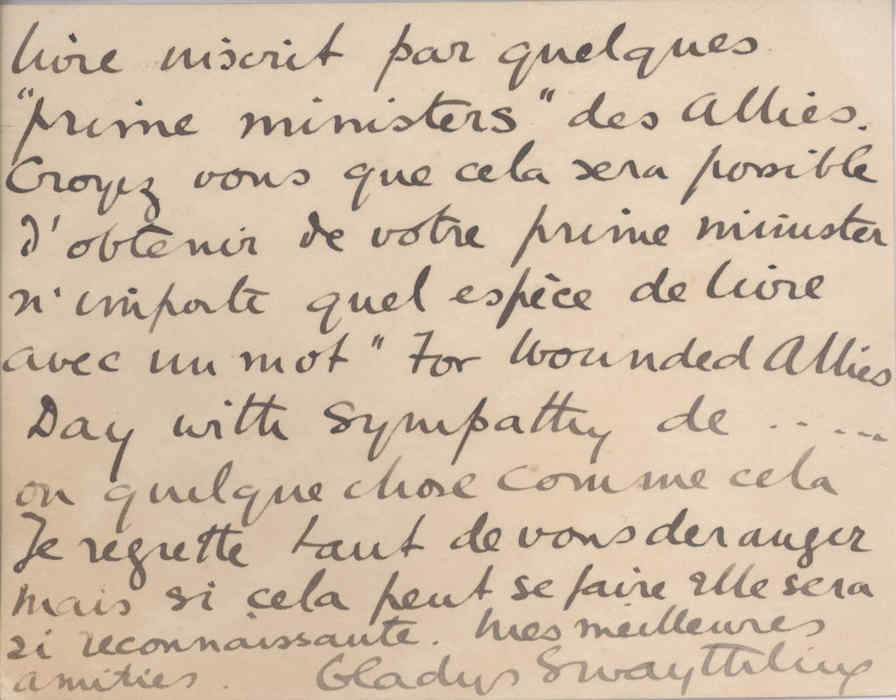 livre inscrit par quelques
"prime ministers" des Alliés.
Croyez vous que cela sera possible
d'obtenir de votre prime minister
n'importe quel espèce de livre
avec un mot "For Wounded Allies
Day with Sympathy de .....
ou quelque chose comme cela
Je regrette tant de vous deranger
mais si cela peut se faire elle sera
si reconnaissante. Mes meilleures
amities. Gladys Swaythling